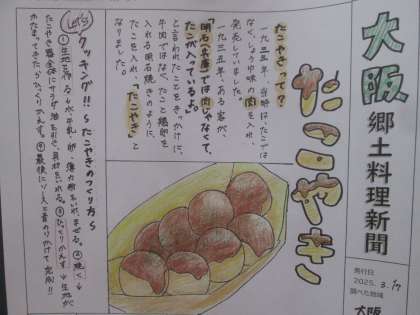 大阪
郷土料理新聞
発行日
2025. 3.17
調べた地域
大阪
たこやき
たこやきって?
一九三五年、当時は、たこでは
なく、しょうゆ味の肉を入れ、
発売していました。
一九三五年、ある客が、
「明石(兵庫)では肉じゃなくて、
たこが入っているよ。」
と言われたことをきっかけに、
牛肉ではなく、たこと鶏卵を
入れる明石焼きのように、
たこを入れ、「たこやき」と
なりました。
Let's
クッキング!!〜たこやきのつくり方〜
①生地を作る→水、牛乳、卵、薄力粉をいれ、まぜる。②焼く→
たこやき器全体にサラダ油を引き、具材をいれる。③ひっくりかえす→生地が
かたまってきたらひっくりかえす。④最後にソースと青のりかけて完成!!